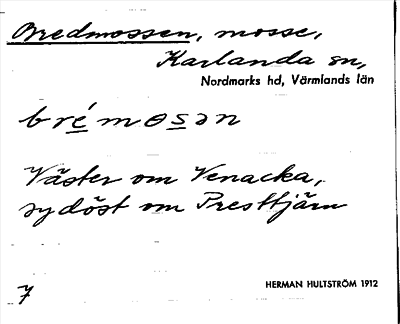 Bredmossen, mosse,
Karlanda sn,
Nordmarks hd, Värmlands län
brémosən
Väster om Venacka,
sydöst om Presttjärn
7
HERMAN HULTSTRÖM 1912